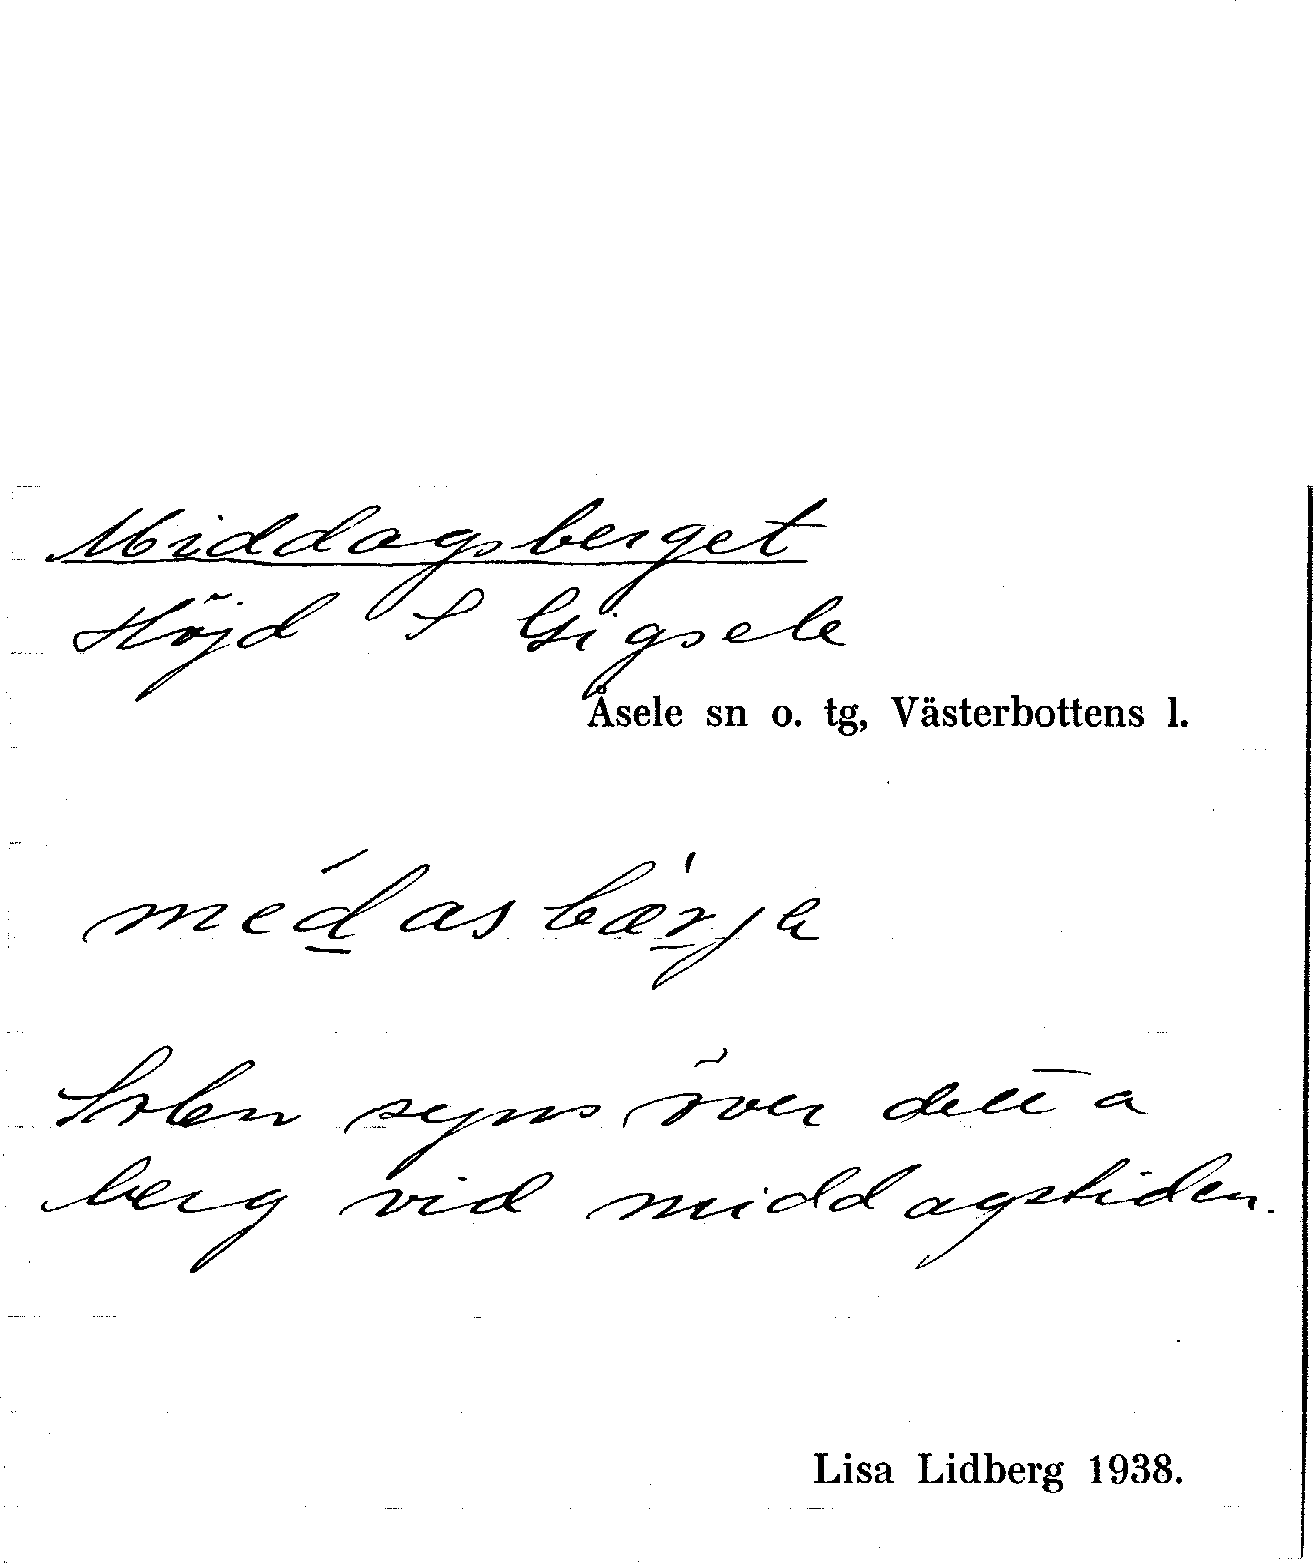 Middagsberget
Höjd S Gigsele
Åsele sn o. tg, Västerbottens l.
médasbæŕja
Solen syns över detta
berg vid middagstiden.
Lisa Lidberg 1938.